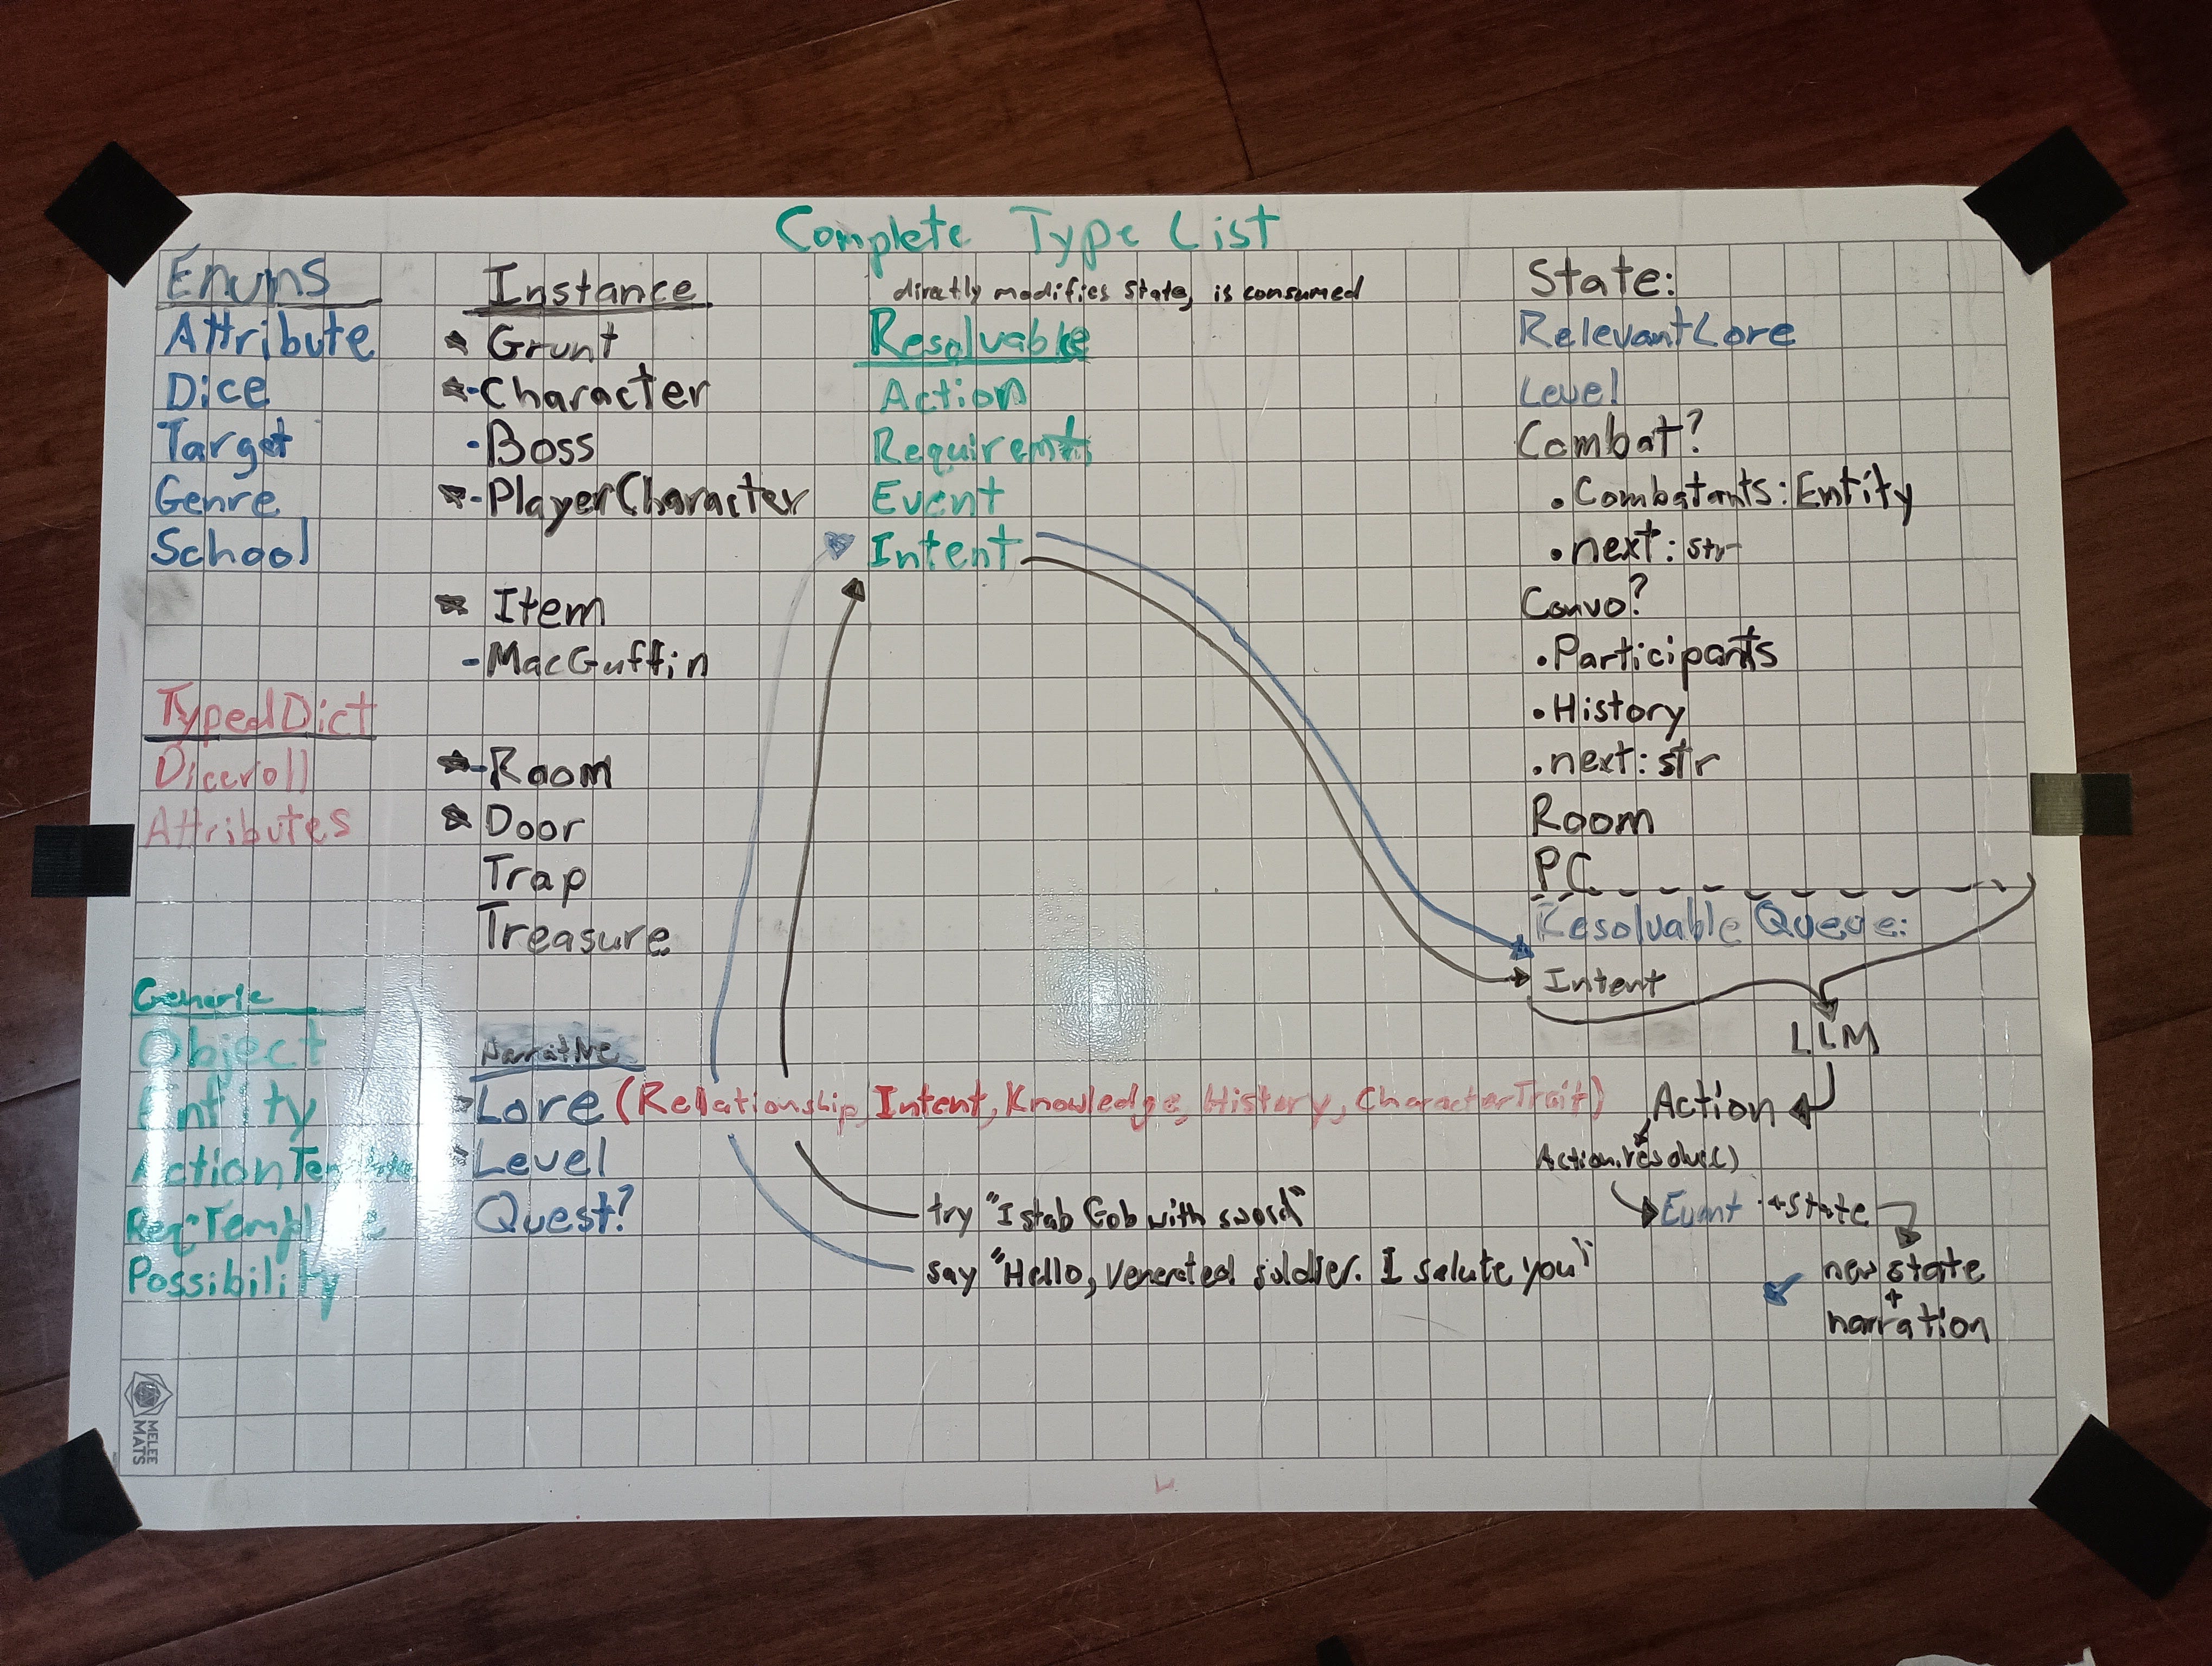 Complete Type List
Enums
Attribute
Dice
Target
Genre
School
TypedDict
Diceroll
Attributes
Generic
Object
Entity
Possibility
Instance
Grunt
-Character
-Boss
-PlayerCharacter
Item
-MacGuffin
-Room
Door
Trap
Treasure
Lore (Relationship, Intent, Knowledge, History, CharacterTrait)
Level
Quest?
try "I stab Gob with sword"
say "Hello, venerated soldier. I salute you"
directly modifies state, is consumed
Resolvable
Action
Event
Intent
State:
RelevantLore
Level
Combat?
.Combatants:Entity
.next:str
Convo?
.Participants
.History
.next:str
Room
PC
Resolvable Queue:
Intent
LLM
Action
Action.resolve()
Event + state
new state
+
narration
MELEE
MATS